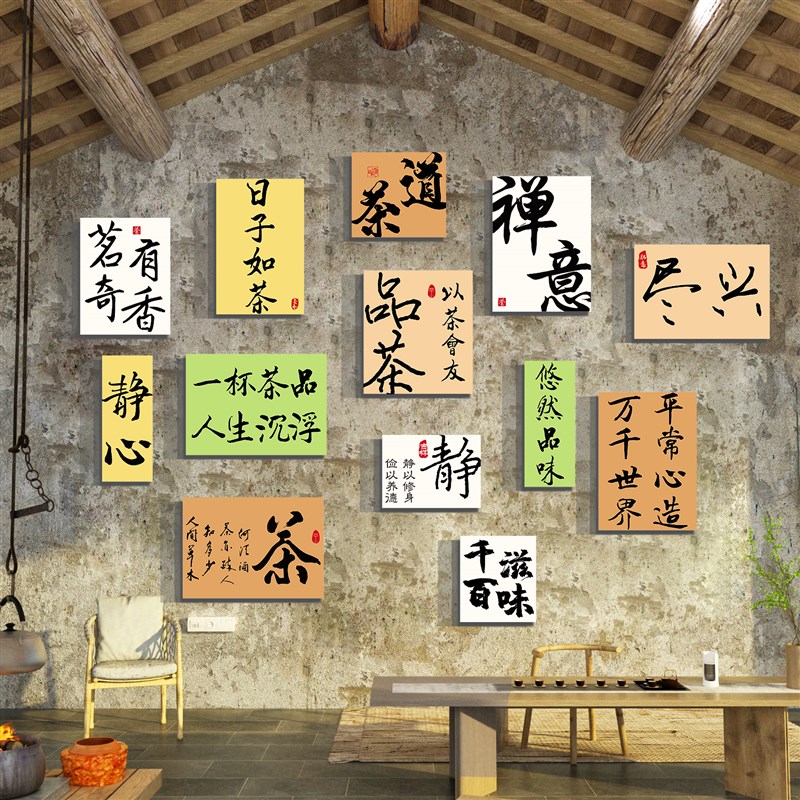 茗有
奇香
日子如茶
茶道
禅意
尽兴
品茶
以茶會友
静心
一杯茶品
人生沉浮
悠然品味
平常心造
万千世界
静
吉祥
静以修身
俭以养德
茶
人间草木
知多少
茶亦醉人
何须酒
千百
滋味